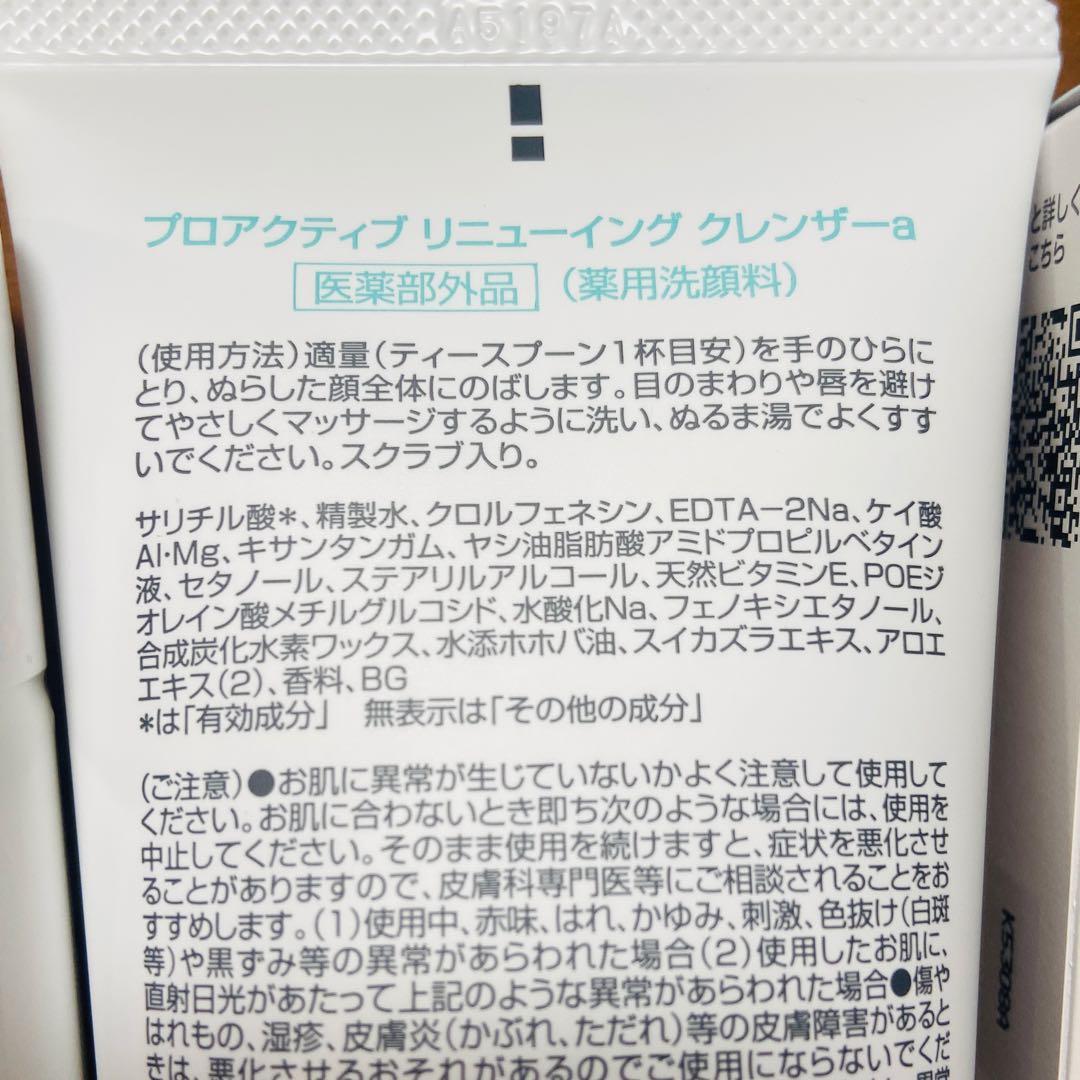 A5197A
プロアクティブ リニューイング クレンザーa
医薬部外品 (薬用洗顔料)
(使用方法)適量(ティースプーン1杯目安)を手のひらに
とり、ぬらした顔全体にのばします。目のまわりや唇を避け
てやさしくマッサージするように洗い、ぬるま湯でよくすす
いでください。スクラブ入り。
サリチル酸*、精製水、クロルフェネシン、EDTA−2Na、ケイ酸
Al・Mg、キサンタンガム、ヤシ油脂肪酸アミドプロピルベタイン
液、セタノール、ステアリルアルコール、天然ビタミンE、POEジ
オレイン酸メチルグルコシド、水酸化Na、フェノキシエタノール、
合成炭化水素ワックス、水添ホホバ油、スイカズラエキス、アロエ
エキス(2)、香料、BG
*は「有効成分」 無表示は「その他の成分」
(ご注意)●お肌に異常が生じていないかよく注意して使用して
ください。お肌に合わないとき即ち次のような場合には、使用を
中止してください。そのまま使用を続けますと、症状を悪化させ
ることがありますので、皮膚科専門医等にご相談されることをお
すすめします。(1)使用中、赤味、はれ、かゆみ、刺激、色抜け(白斑
等)や黒ずみ等の異常があらわれた場合(2)使用したお肌に、
直射日光があたって上記のような異常があらわれた場合●傷や
はれもの、湿疹、皮膚炎(かぶれ、ただれ)等の皮膚障害があると
きは、悪化させるおそれがあるのでご使用にならないでくだ
と詳しく
こちら